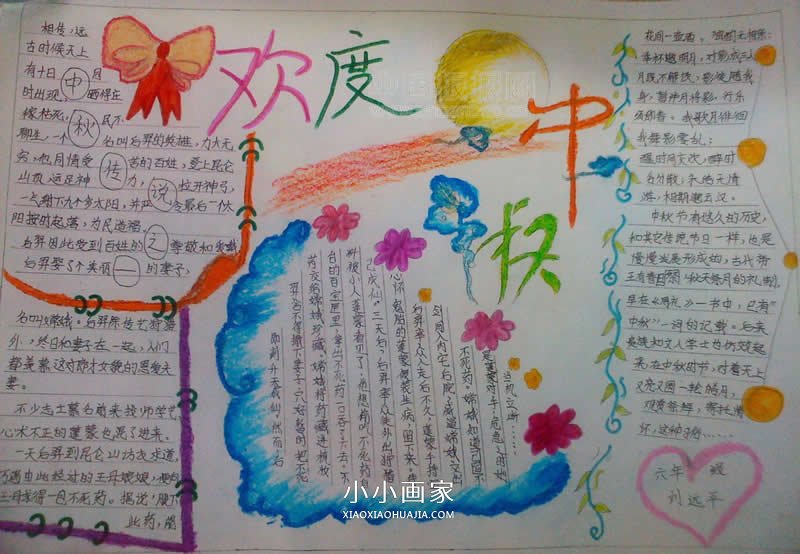 欢度中秋
相传,远
古时候天上
有十日
时出现,晒得庄
稼枯死,民不
聊生,一个名叫后羿的英雄,力大无
穷,他同情受苦的百姓,登上昆仑
山顶,运足神力,拉开神弓,
一口气射下九个多太阳,并严令最后一个太
阳按时起落,为民造福。
后羿因此受到百姓的尊敬和爱戴
后羿娶了个美丽的妻子,
中秋传说之一
名叫嫦娥。后羿除传艺狩猎
外,终日和妻子在一起,人们
都羡慕这对郎才女貌的恩爱夫
妻。
不少志士慕名前来投师学艺
心术不正的蓬蒙也混了进来。
一天后羿到昆仑山访友求道,
巧遇由此经过的王母娘娘,便向
王母求得一包不死药。据说,服下
此药,能
即刻升天成仙,然而后
羿舍不得撇下妻子,只好暂时把不死
药交给嫦娥珍藏。嫦娥将药藏进梳妆
台的百宝匣里,
三天后,后羿率众徒外出狩猎
心怀鬼胎的蓬蒙假装生病,留了下来。
后羿率众人走后不久,蓬蒙手持
宝剑闯入内宅后院,威逼嫦娥交出
不死药。嫦娥知道自己不
是蓬蒙对手,危急之时她
当机立断……
花间一壶酒。独酌无相亲;
举杯邀明月,对影成三人
月既不解饮,影徒随我
身;暂伴月将影,行乐
须及春。我歌月徘徊
我舞影零乱;
醒时同交欢,醉时
各分散;永结无情
游,相期邈云汉。
中秋节有悠久的历史,
和其它传统节日一样,也是
慢慢发展形成的,古代帝
王有春日祭日,秋天祭月的礼制,
早在《周礼》一书中,已有“
中秋”一词的记载。后来
贵族和文人学士也仿效起
来,在中秋时节,对着天上
又亮又圆一轮皓月,
观赏祭拜,寄托情
怀,这种习俗……
六年 班
刘远平
小小画家
XIAOXIAOHUAJIA.COM